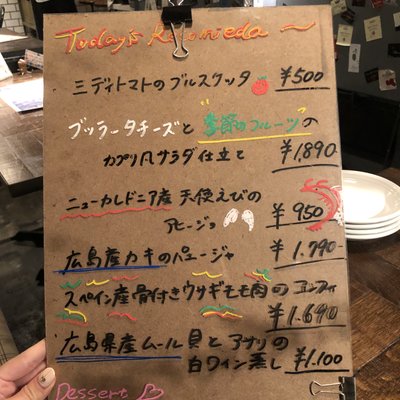 Today's Recomeda
ミディトマトのブルスケッタ ¥500
ブッラータチーズと "季節のフルーツ"の
カプリ風サラダ仕立て ¥1,890
ニューカレドニア産 天使えびの
アヒージョ ¥950
広島産カキのペルージャ ¥1,790
スペイン産骨付きウサギモモ肉の コンフィ
¥1,690
広島県産ムール貝とアサリの
白ワイン蒸し ¥1,100
Dessert